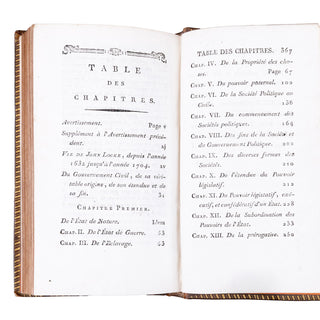 TABLE
DES
CHAPITRES.
Avertissement. Page
Supplément à l'Avertissement précé-
dent. xj
VIE DE JOHN LOCKE, depuis l'année
1632 jusqu'à l'année 1704. xv
DU GOUVERNEMENT CIVIL, de sa vé-
ritable origine, de son étendue et de
sa fin.
CHAPITRE PREMIER.
De l'Etat de Nature. Idem
CHAP. II. De l'Etat de Guerre. 45
CHAP. III. De l'Esclavage. 63
TABLE DES CHAPITRES. 367
CHAP. IV. De la Propriété des cho-
ses. Page 67
CHAP. V. Du pouvoir paternel. 100
CHAP. VI. De la Société Politique ou
Civile. 136
CHAP. VII. Du commencement des
Sociétés politiques. 164
CHAP. VIII. Des fins de la Société et
du Gouvernement Politique. 202
CHAP. IX. Des diverses formes des
Sociétés.
CHAP. X. De l'étendue du Pouvoir
législatif.
CHAP. XI. Du Pouvoir législatif, exé-
cutif, et confédératif d'un Etat. 228
CHAP. XII. De la Subordination des
Pouvoirs de l'Etat. 233
CHAP. XIII. De la prérogative. 250